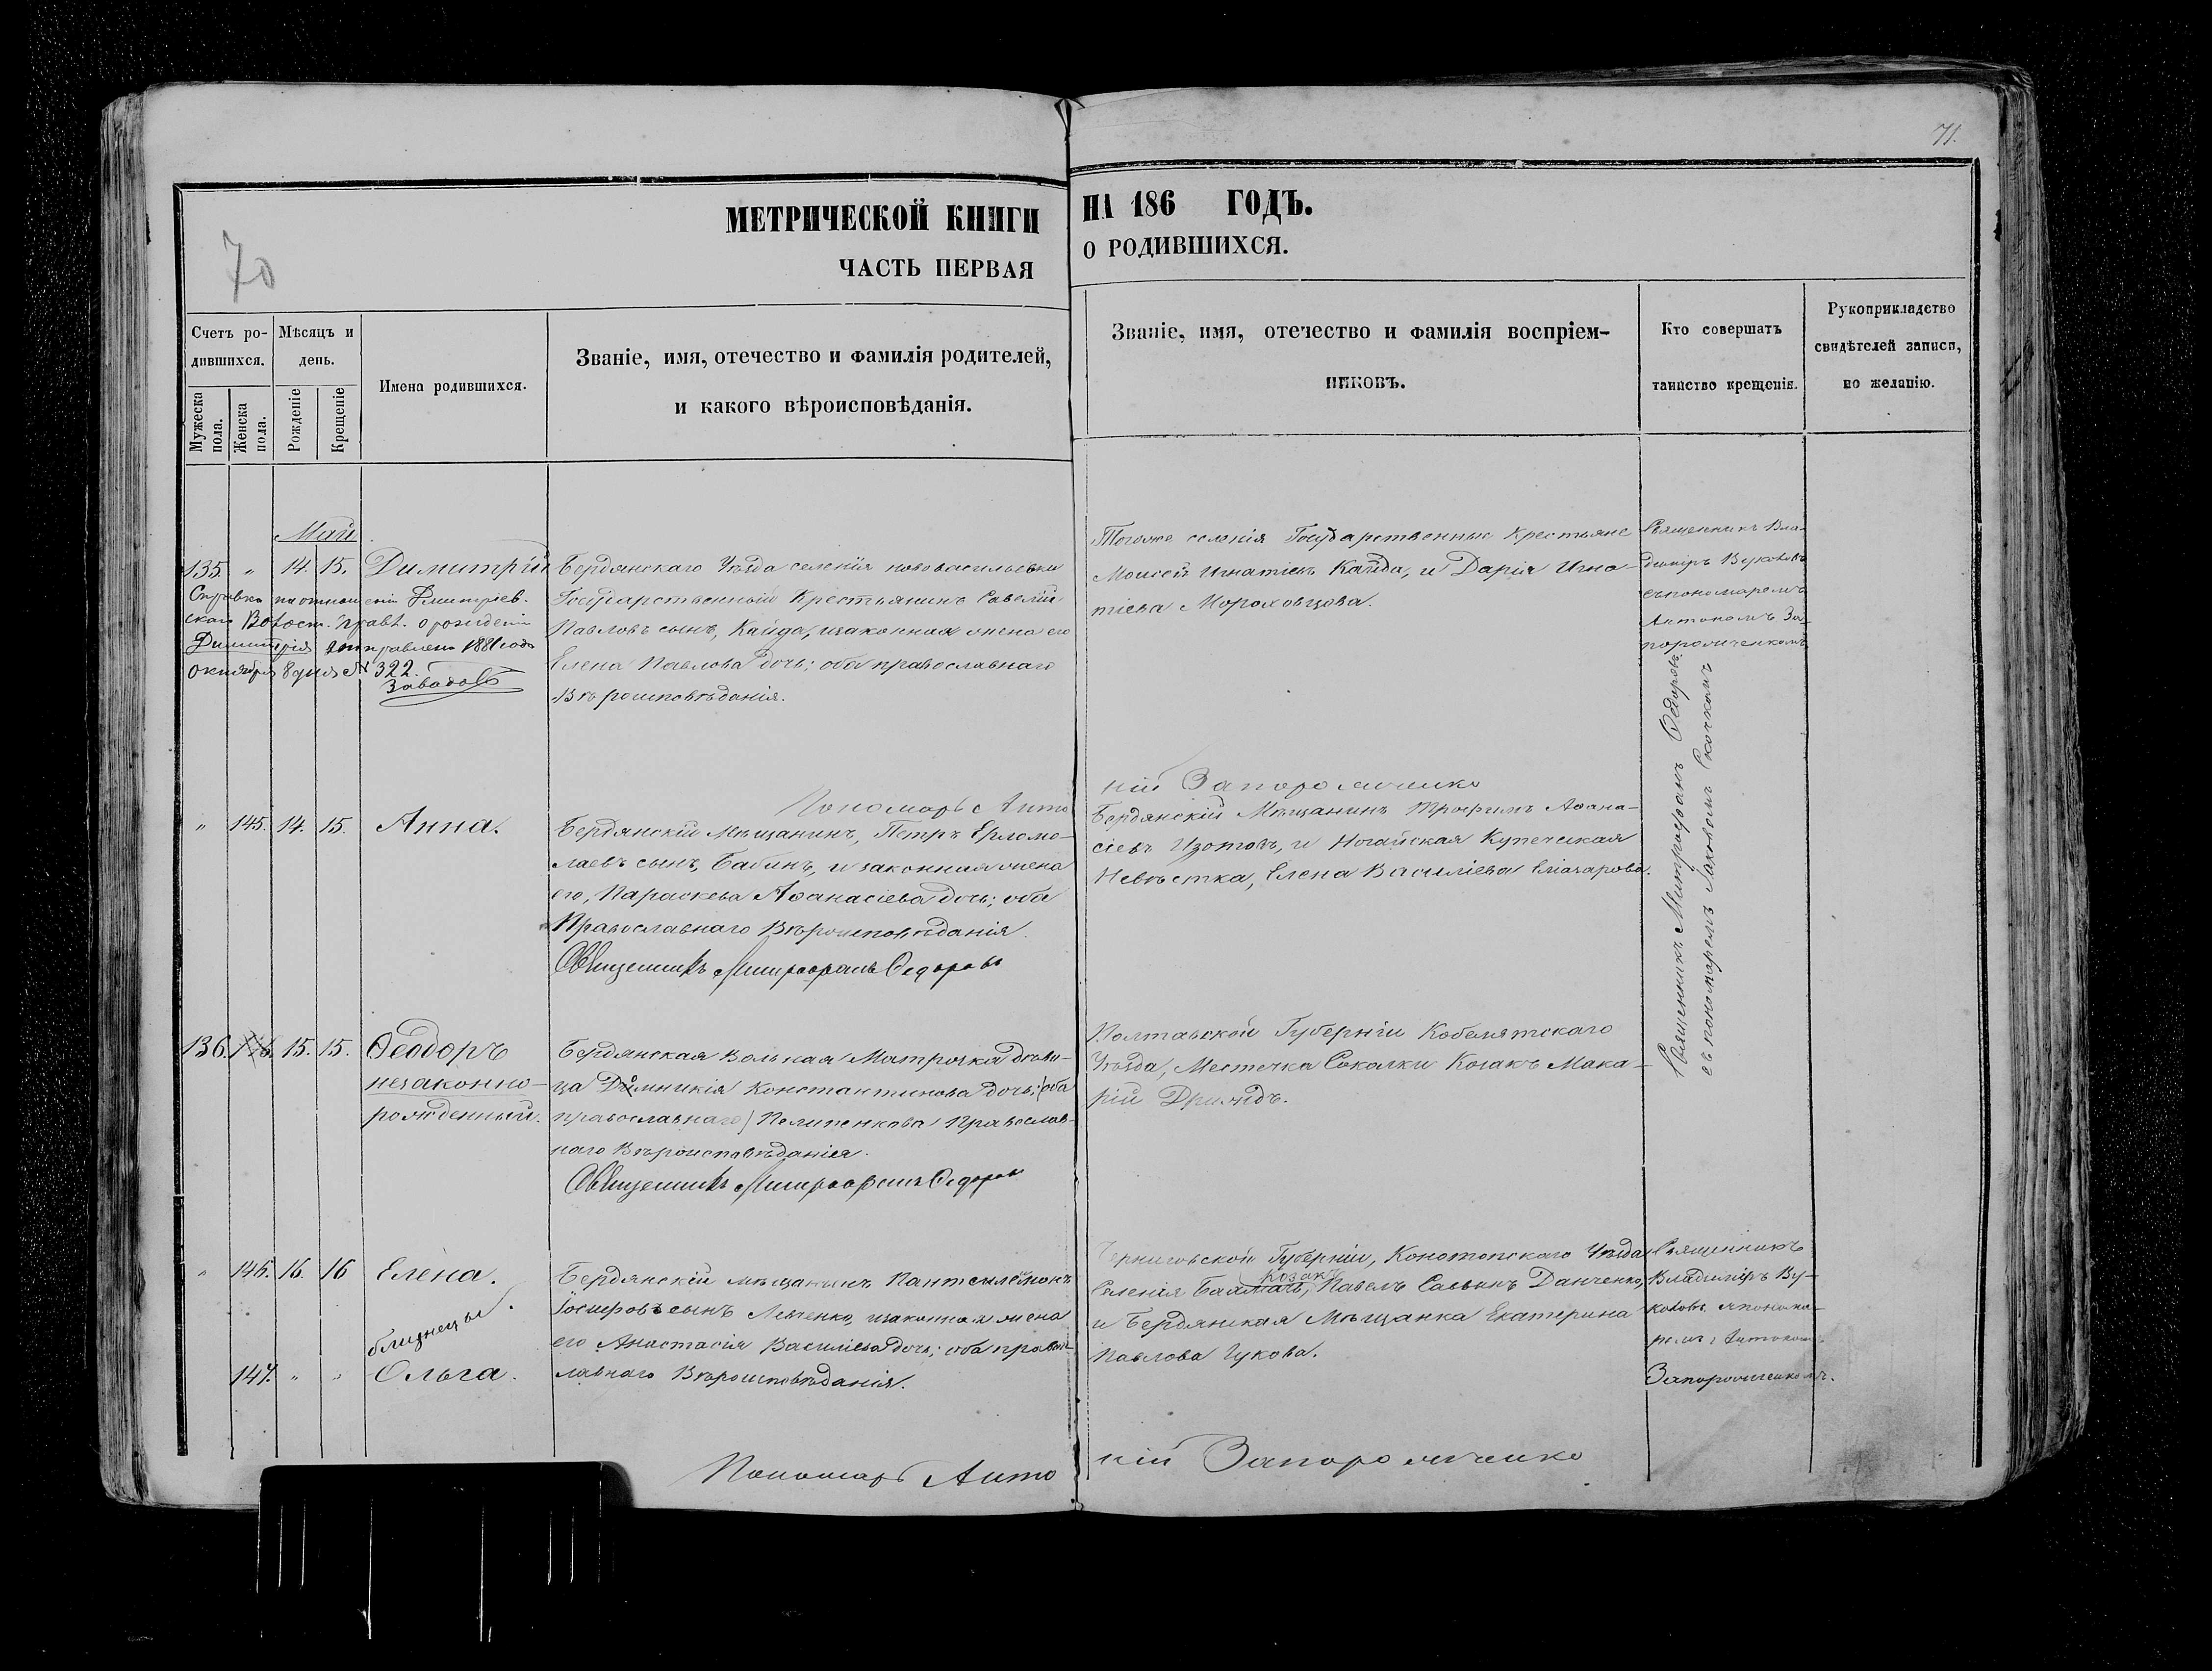 71.
70
МЕТРИЧЕСКОЙ КНИГИ НА 186 ГОДЪ.
ЧАСТЬ ПЕРВАЯ О РОДИВШИХСЯ.
Счетъ ро-
дившихся.
Мужеска пола.
Женска пола.
Мѣсяцъ и
день.
Рожденіе
Крещеніе
Имена родившихся.
Званіе, имя, отечество и фамилія родителей,
и какого вѣроисповѣданія.
Званіе, имя, отечество и фамилія воспріем-
никовъ.
Кто совершатъ
таинство крещенія.
Рукоприкладство
свидѣтелей записи,
по желанію.
Май
135. " 14. 15. Димитрій
Справка по отношенію Дмитріев.
скаго Волост. правл. о рожденіи
Димитрія отправлена 1881 года
Октября 8 дня № 322.
Бердянскаго Уѣзда селенія нововасильевки
Государственный Крестьянинъ Савелій
Павловъ сынъ, Кайда, изаконная жена его
Елена Павлова дочь; оба православнаго
Вѣроисповѣданія.
Тогоже селенія Государственные Крестьяне
Моисей Игнатіевъ Кайда, и Дарія Игна-
тіева Мороховцова.
Священникъ Вла-
диміръ Вуколовъ
съ пономаремъ
Антономъ За-
порожченкомъ
Пономарь Анто
ній Запорожченко
" 145. 14. 15. Анна.
Бердянскій Мѣщанинъ, Петръ Ермо-
лаевъ сынъ, Бабинъ, и законная жена
его, Параскева Аѳанасіева дочь; оба
Православнаго Вѣроисповѣданія.
Священникъ Митрофанъ Ѳедоровъ
Бердянскій Мѣщанинъ Трофимъ Аѳана-
сіевъ Изотовъ, и Ногайская Купеческая
Невѣстка, Елена Василіева Еліазарова.
Священникъ Митрофанъ Ѳедоровъ
съ пономаремъ Іаковомъ
136. 146. 15. 15. Ѳеодоръ
незаконно-
рожденный.
Бердянская вольная Матрочка дѣви-
ца Домникія Константинова дочь; (оба
православнаго) Пелипенкова Православ-
наго Вѣроисповѣданія.
Священникъ Митрофанъ Ѳедоровъ
Полтавской Губерніи Кобелятскаго
Уѣзда, Местечка Соколки Козакъ Мака-
рій
" 146. 16. 16 Елена.
близнецы.
147. " " Ольга.
Бердянскій мѣщанинъ Пантелеймонъ
Іосифовъ сынъ Левченко, изаконная жена
его Анастасія Василіева дочь; оба правос-
лавнаго Вѣроисповѣданія.
Черниговской Губерніи, Конотопскаго Уѣзда
козакъ
Селенія Бахмачъ, Павелъ Саввинъ Данченко,
и Бердянская Мѣщанка Екатерина
Павлова
Священникъ
Владиміръ Ву-
коловъ спонома-
ремъ Антономъ
Запорожченкомъ.
Пономарь Анто
ній Запорожченко